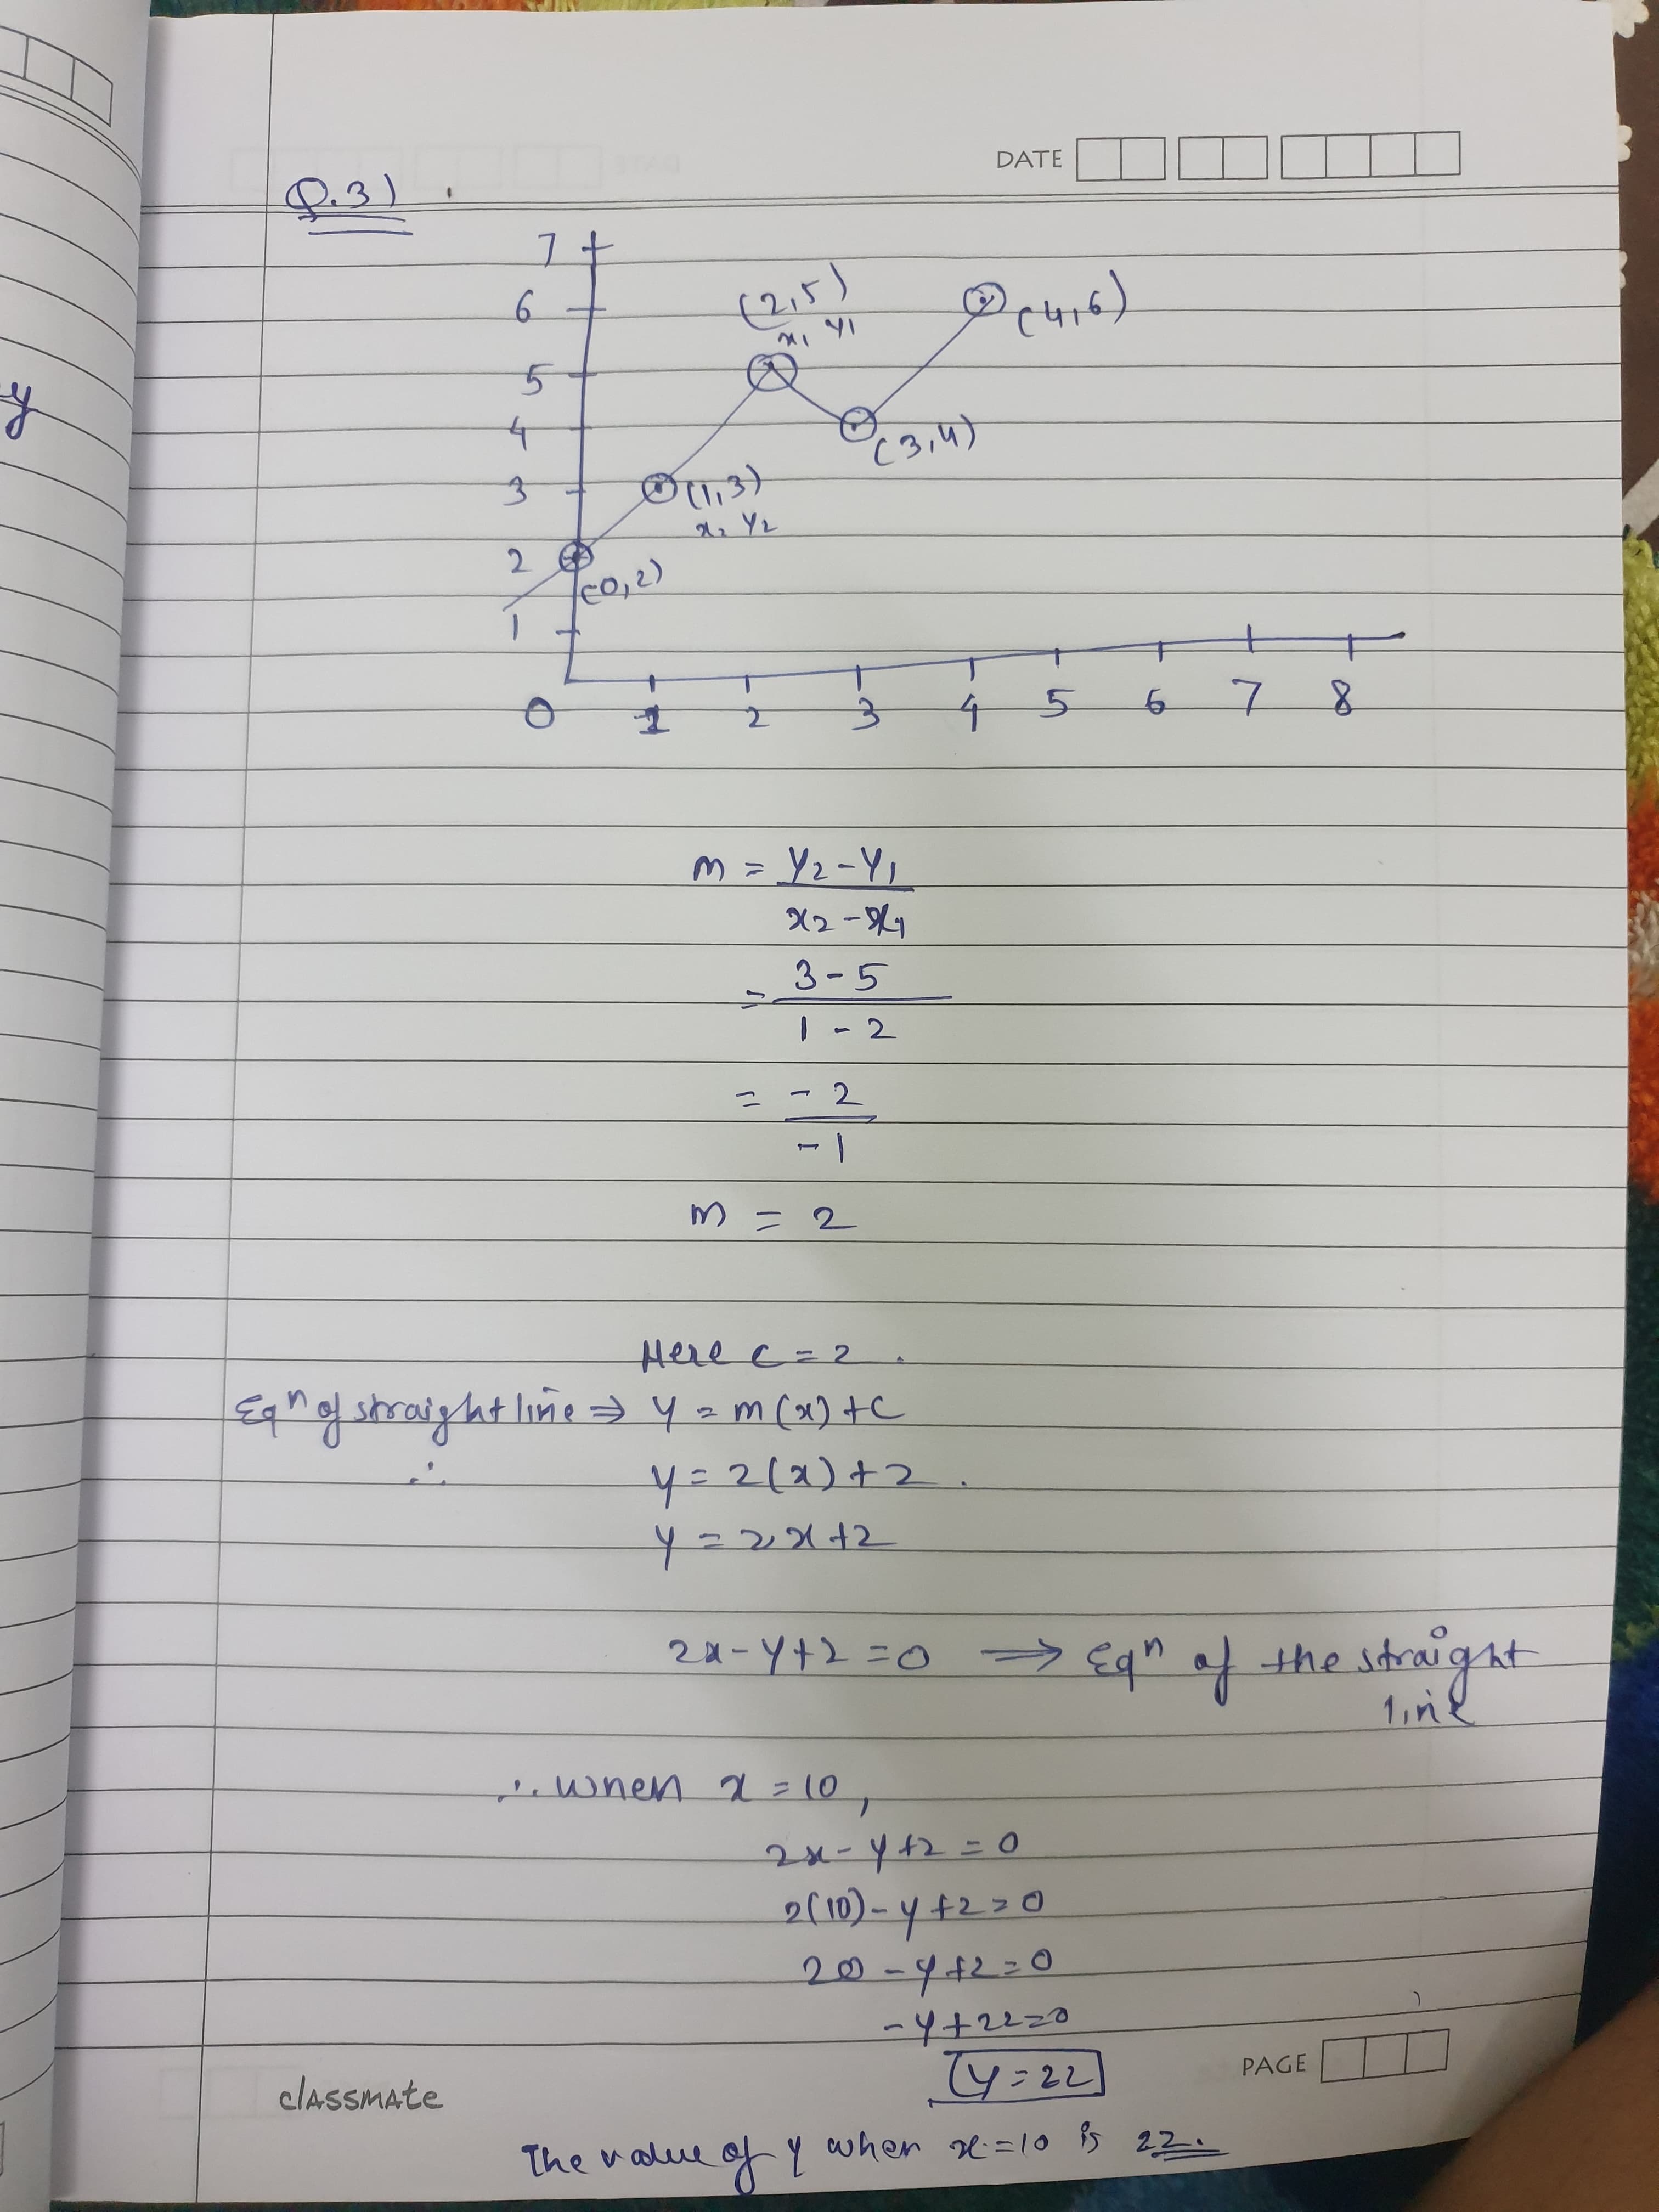 DATE
Q.3)
7
6
5
4
3
2
1
(2,5)
x1 y1
(4,6)
(3,4)
(1,3)
x2 y2
(0,2)
0 1 2 3 4 5 6 7 8
y
m = y2 - y1
x2 - x1
= 3 - 5
1 - 2
= - 2
- 1
m = 2
Here c = 2 .
Eqn of straight line ⇒ y = m(x) + c
∴ y = 2(x) + 2 .
y = 2x + 2
2x - y + 2 = 0 ⇒ Eqn of the straight
line
∴ when x = 10,
2x - y + 2 = 0
2(10) - y + 2 = 0
20 - y + 2 = 0
- y + 22 = 0
y = 22
classmate
PAGE
The value of y when x = 10 is 22.